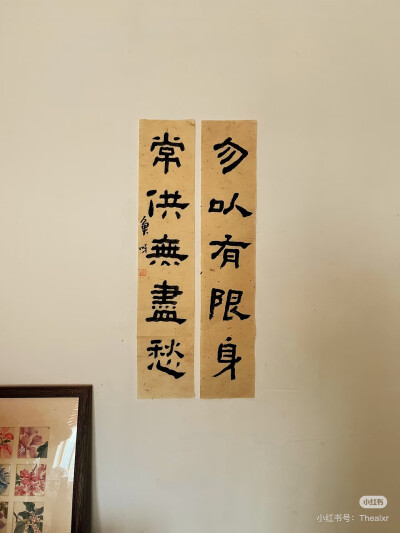 勿以有限身
常供無盡愁
小红书
小红书号：Thealxr